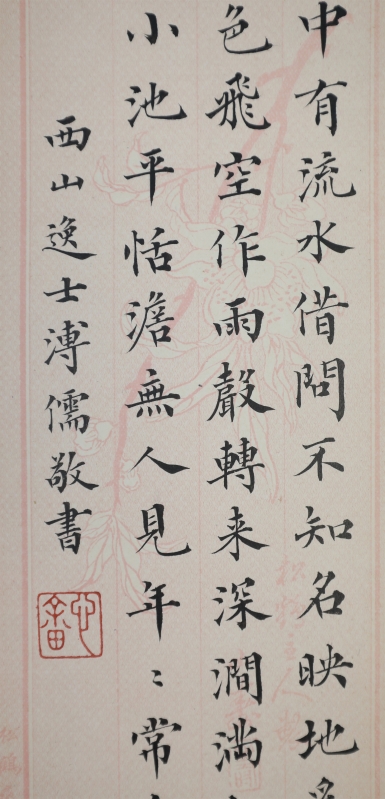 中有流水借問不知名映地多
色飛空作雨聲轉来深澗滿
小池平恬澹無人見年〻常
西山逸士溥儒敬書
心畬